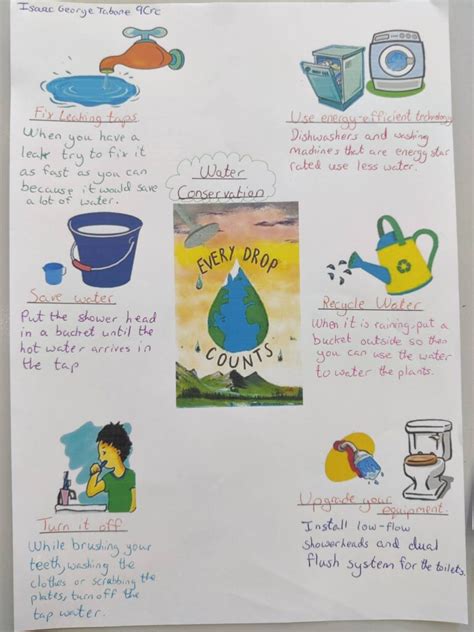 Isaac George Tabone 9Crc
Fix Leaking taps
When you have a
leak try to fix it
as fast as you can
because it would save
a lot of water.
Use energy-efficient technology
Dishwashers and washing
machines that are energy star
rated use less water.
Water
Conservation
EVERY DROP
COUNTS
Save water
Put the shower head
in a bucket until the
hot water arrives in
the tap
Recycle Water
When it is raining, put a
bucket outside so then
you can use the water
to water the plants.
Turn it off
While brushing your
teeth, washing the
clothes or scrubbing the
plates, turn off the
tap water.
Upgrade your
equipment
Install low-flow
showerheads and dual
flush system for the toilets.